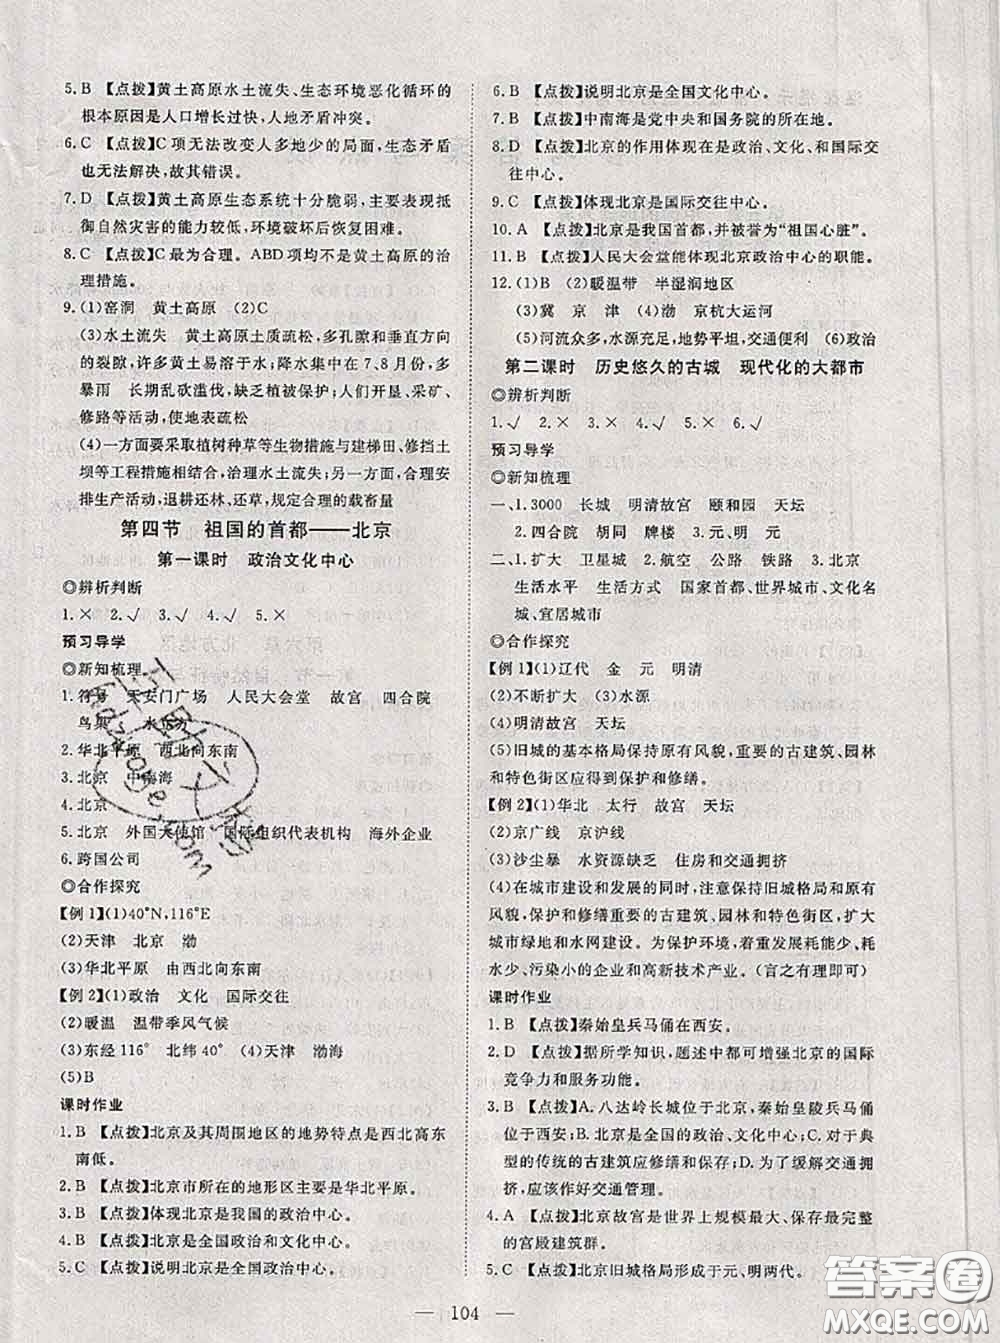 5. B 【点拨】黄土高原水土流失、生态环境恶化循环的
根本原因是人口增长过快,人地矛盾冲突。
6. C 【点拨】C 项无法改变人多地少的局面,生态矛盾
也无法解决,故其错误。
7. D 【点拨】黄土高原生态系统十分脆弱,主要表现抵
御自然灾害的能力较低,环境破坏后恢复困难。
8. C 【点拨】C最为合理。ABD项均不是黄土高原的治
理措施。
9. (1)窑洞 黄土高原 (2)C
(3)水土流失 黄土高原土质疏松,多孔隙和垂直方向
的裂隙,许多黄土易溶于水;降水集中在7、8月份,多
暴雨 长期乱砍滥伐,破坏地表植被;采矿、
修路等活动,使地表疏松
(4)一方面要采取植树种草等生物措施与建梯田、修挡土
坝等工程措施相结合,治理水土流失;另一方面,合理安
排生产活动,退耕还林、还草,规定合理的载畜量
第四节 祖国的首都——北京
第一课时 政治文化中心
◎辨析判断
1.× 2.√ 3.√ 4.√ 5.×
预习导学
◎新知梳理
1. 符号 天安门广场 人民大会堂 故宫 四合院
鸟巢 水立方
2. 华北平原 西北向东南
3. 北京 中南海
4. 北京
5. 北京 外国大使馆 国际组织代表机构 海外企业
6. 跨国公司
◎合作探究
【例 1】(1)40°N,116°E
(2)天津 北京 渤
(3)华北平原 由西北向东南
【例 2】(1)政治 文化 国际交往
(2)暖温 温带季风气候
(3)东经116° 北纬40° (4)天津 渤海
(5)B
课时作业
1. B 【点拨】北京及其周围地区的地势特点是西北高东
南低。
2. B 【点拨】北京市所在的地形区主要是华北平原。
3. B 【点拨】体现北京是我国的政治中心。
4. B 【点拨】北京是全国政治和文化中心。
5. C 【点拨】说明北京是全国政治中心。
6. B 【点拨】说明北京是全国文化中心。
7. B 【点拨】中南海是党中央和国务院的所在地。
8. D 【点拨】北京的作用体现在是政治、文化、和国际交
往中心。
9. C 【点拨】体现北京是国际交往中心。
10. A 【点拨】北京是我国首都,并被誉为“祖国心脏”。
11. B 【点拨】人民大会堂能体现北京政治中心的职能。
12. (1)B (2)暖温带 半湿润地区
(3)冀 京 津 (4)渤 京杭大运河
(5)河流众多,水源充足,地势平坦,交通便利 (6)政治
第二课时 历史悠久的古城 现代化的大都市
◎辨析判断
1.√ 2.× 3.× 4.√ 5.√ 6.√
预习导学
◎新知梳理
一、1. 3000 长城 明清故宫 颐和园 天坛
2. 四合院 胡同 牌楼 3. 元、明 元
二、1. 扩大 卫星城 2. 航空 公路 铁路 3. 北京
生活水平 生活方式 国家首都、世界城市、文化名
城、宜居城市
◎合作探究
【例 1】(1)辽代 金 元 明清
(2)不断扩大 (3)水源
(4)明清故宫 天坛
(5)旧城的基本格局保持原有风貌,重要的古建筑、园林
和特色街区应得到保护和修缮。
【例 2】(1)华北 太行 故宫 天坛
(2)京广线 京沪线
(3)沙尘暴 水资源缺乏 住房和交通拥挤
(4)在城市建设和发展的同时,注意保持旧城格局和原有
风貌,保护和修缮重要的古建筑、园林和特色街区,扩大
城市绿地和水网建设。为保护环境,着重发展耗能少、耗
水少、污染小的企业和高新技术产业。(言之有理即可)
课时作业
1. B 【点拨】秦始皇兵马俑在西安。
2. D 【点拨】据所学知识,题述中都可增强北京的国际
竞争力和服务功能。
3. B 【点拨】A. 八达岭长城位于北京,秦始皇陵兵马俑
位于西安;B. 北京是全国的政治、文化中心;C. 对于典
型的传统的古建筑应修缮和保存;D. 为了缓解交通拥
挤,应该作好交通管理。
4. A 【点拨】北京故宫是世界上规模最大、保存最完整
的宫殿建筑群。
5. C 【点拨】北京旧城格局形成于元、明两代。
— 104 —
答案圈
MXQE.COM